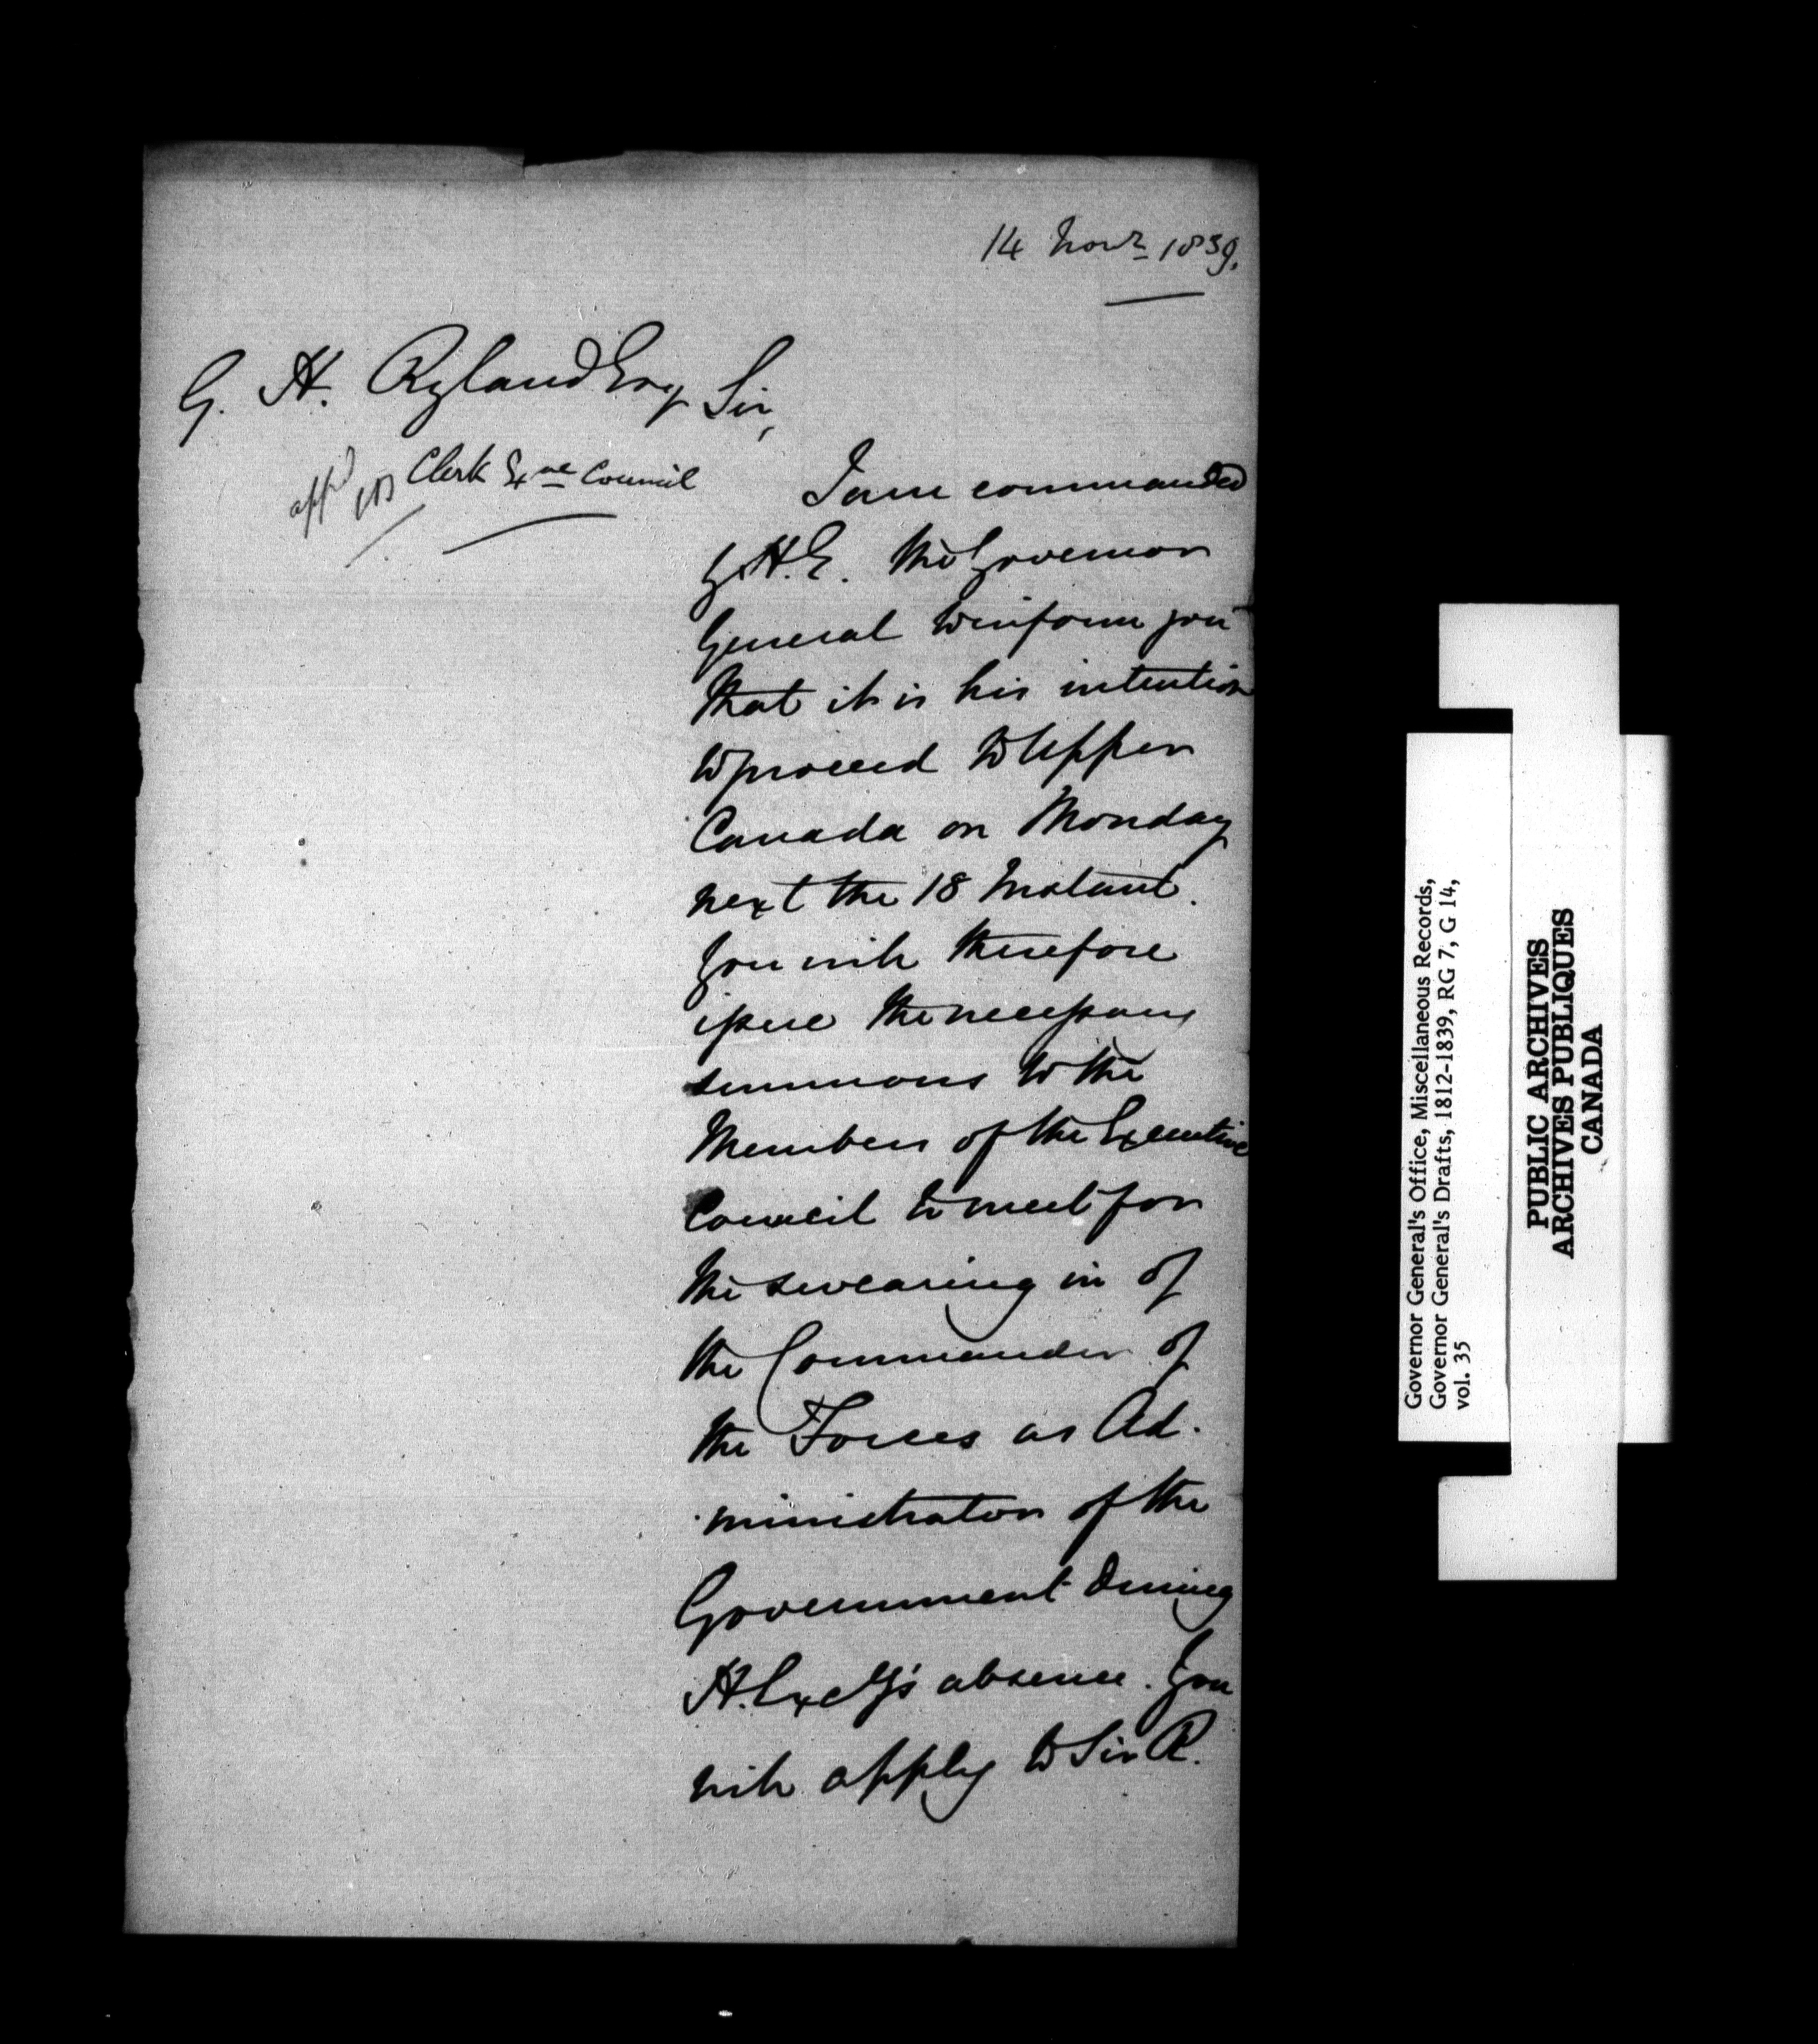 14 Novr 1839.
G. H. Ryland Esq
Sir,
appd
Clerk Exve Council
I am commanded
by H.E. the Governor
General to inform you
that it is his intention
to proceed to Upper
Canada on Monday
next the 18 Instant.
You will therefore
issue the necessary
summons to the
Members of the Executive
Council to meet for
the swearing in of
the Commander of
the Forces as Ad-
ministrator of the
Government during
H. Excy's absence. You
will apply to Sir R.
Governor General's Office, Miscellaneous Records,
Governor General's Drafts, 1812-1839, RG 7, G 14,
vol. 35
PUBLIC ARCHIVES
ARCHIVES PUBLIQUES
CANADA